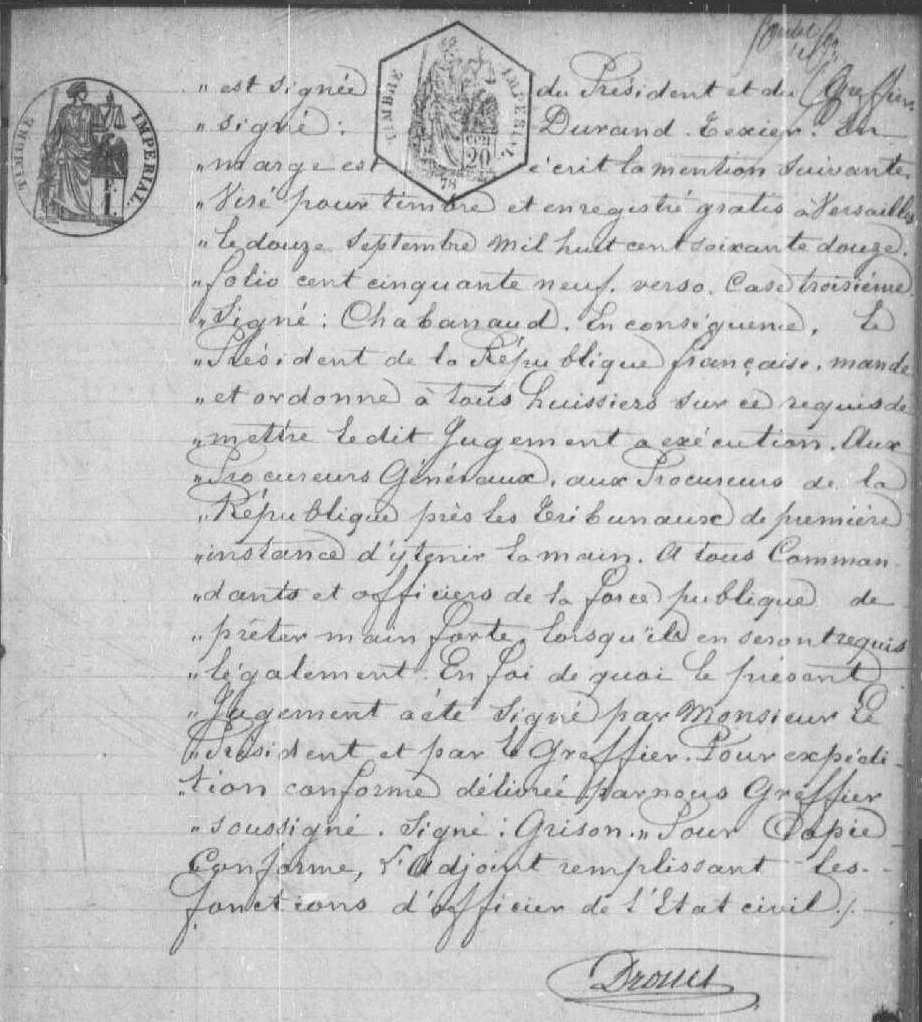 TIMBRE IMPERIAL
TIMBRE IMPERIAL
20
78
„ est signée du Président et du Greffier
„ signé : Durand. Texier. En
„ marge est écrit la mention suivante.
„ Visé pour timbre et enregistré gratis à Versailles
„ le douze Septembre mil huit cent soixante douze.
„ folio cent cinquante neuf. verso. Case troisième
„ Signé : Chabarraud. En conséquence, le
„ Président de la République française, mande
„ et ordonne à tous huissiers sur ce requis de
„ mettre ledit Jugement à exécution. Aux
„ Procureurs Généraux, aux Procureurs de la
„ République près les Tribunaux de première
„ instance d'y tenir la main. A tous Comman
„ dants et officiers de la force publique de
„ prêter main forte, lorsqu'ils en seront requis
„ légalement. En foi de quoi le présent
„ Jugement a été signé par Monsieur le
„ Président et par le Greffier. Pour expédi-
„ tion conforme délivrée par nous Greffier
„ soussigné. Signé : Grison „ Pour Copie
Conforme, L'Adjoint remplissant les
fonctions d'officier de l'Etat civil ./.
Drouet